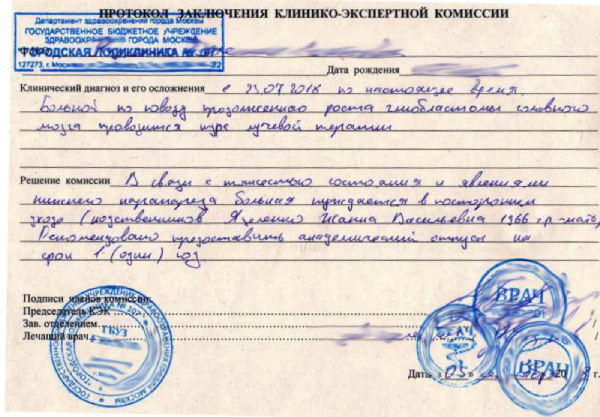 ПРОТОКОЛ ЗАКЛЮЧЕНИЯ КЛИНИКО-ЭКСПЕРТНОЙ КОМИССИИ
Департамент здравоохранения города Москвы
ГОСУДАРСТВЕННОЕ БЮДЖЕТНОЕ УЧРЕЖДЕНИЕ
ЗДРАВООХРАНЕНИЯ ГОРОДА МОСКВЫ
ГОРОДСКАЯ ПОЛИКЛИНИКА №
127273, г. Москва
Дата рождения
Клинический диагноз и его осложнения с 23.07 2018 по настоящее время.
Больной по поводу продолженного роста глиобластомы головного
мозга проводится курс лучевой терапии
Решение комиссии В связи с тяжестью состояния и явлениями
нижнего парапареза больная нуждается в постороннем
уходе (родственников Жанна Васильевна 1966 г.р-мать)
Рекомендовано предоставить академический отпуск на
срок 1 (один) год
Подписи членов комиссии:
Председатель КЭК
Зав. отделением
Лечащий врач
ГБУЗ
ВРАЧ
ВРАЧ
ВРАЧ
Дата «03» 20 8 г.